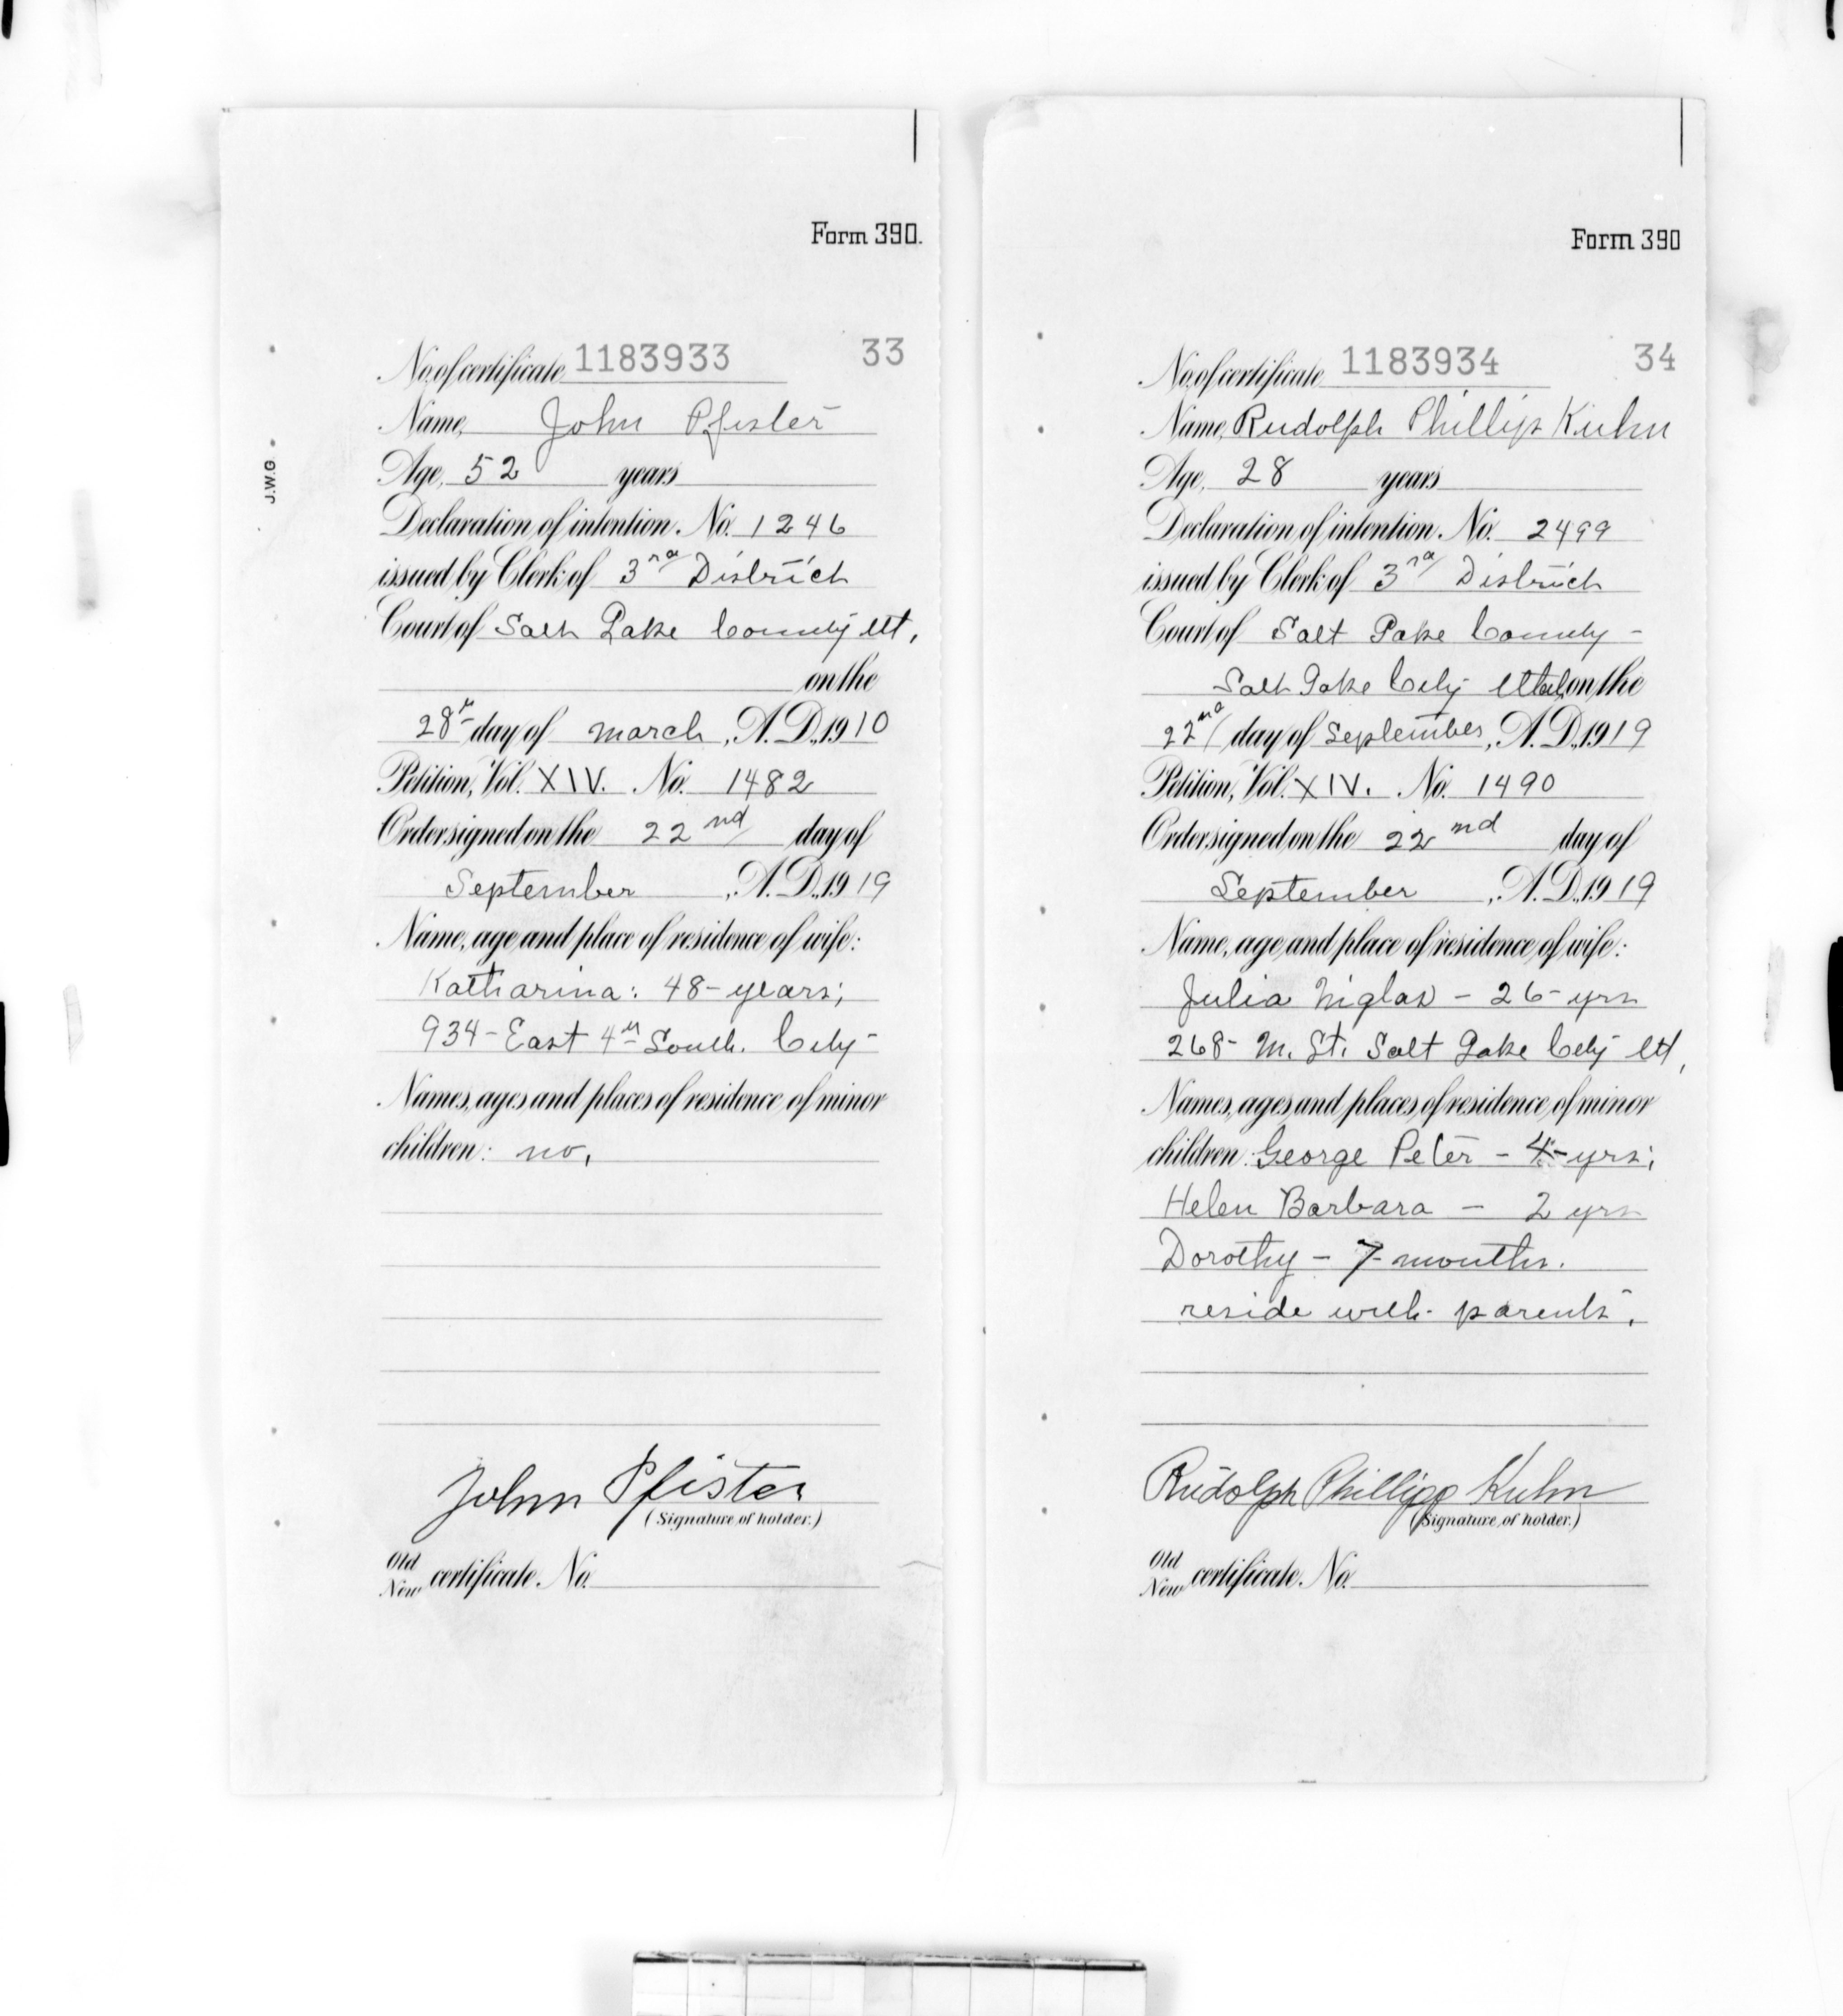 Form 390.
No. of certificate 1183933 33
Name, John Pfister
Age, 52 years
Declaration of intention. No. 1246
issued by Clerk of 3rd District
Court of Salt Lake County Ut,
on the
28th day of March, A. D., 1910
Petition, Vol. XIV. No. 1482
Order signed on the 22nd day of
September, A. D., 1919
Name, age and place of residence of wife:
Katharina: 48-years;
934-East 4th South. City-
Names, ages and places of residence of minor
children: no,
John Pfister
(Signature of holder.)
Old
New certificate. No.
J.W.G
Form 390
No. of certificate 1183934 34
Name, Rudolph Phillip Kuhn
Age, 28 years
Declaration of intention. No. 2499
issued by Clerk of 3rd District
Court of Salt Lake County -
Salt Lake City Utah on the
22nd day of September, A. D., 1919
Petition, Vol. XIV. No. 1490
Order signed on the 22nd day of
September, A. D., 1919
Name, age and place of residence of wife:
Julia - 26-yrs
268- M. St. Salt Lake City Ut,
Names, ages and places of residence of minor
children: George Peter - 4-yrs;
Helen Barbara - 2 yrs
Dorothy - 7-months.
reside with parents.
Rudolph Phillipp Kuhn
(Signature of holder.)
Old
New certificate. No.